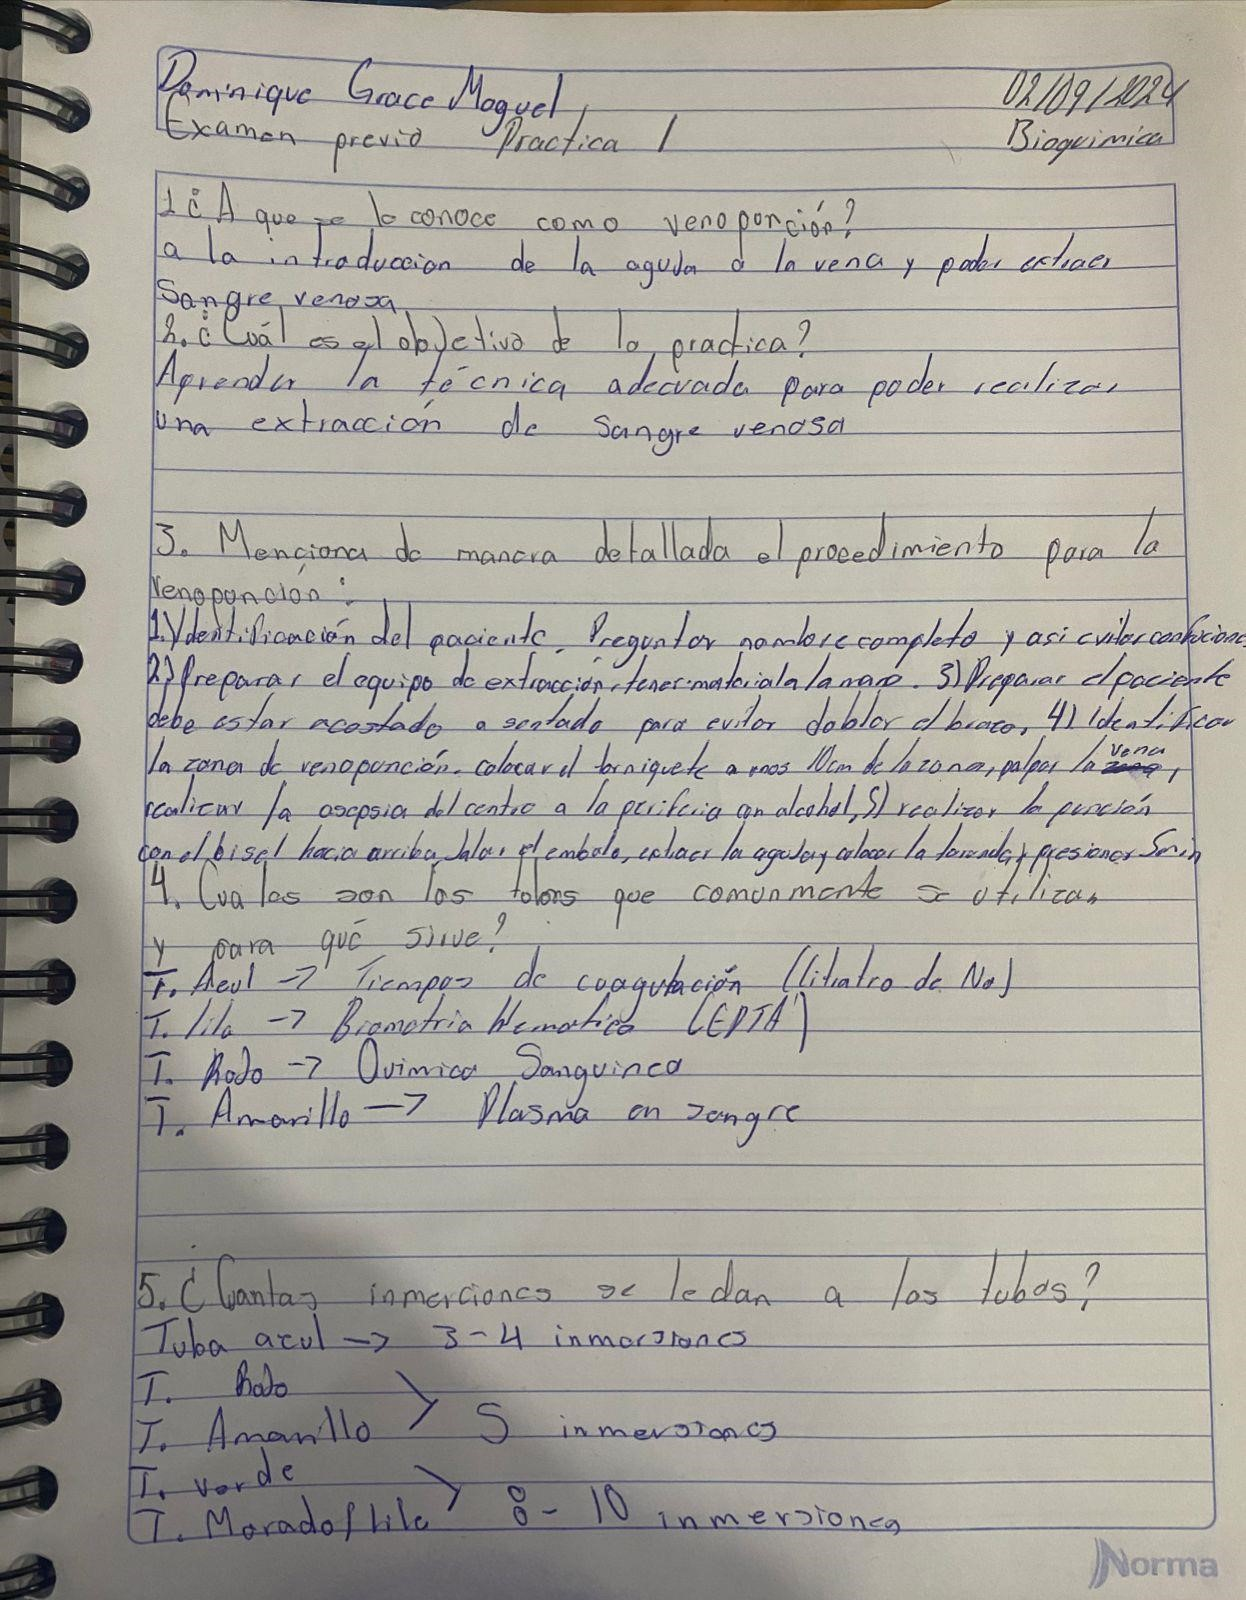 Dominique Grace Moguel
02/09/2024
Examen previo Practica 1
Bioquimica
1¿A que se le conoce como venopunción?
a la introduccion de la aguja a la vena y poder extraer
Sangre venosa
2.¿Cuál es el objetivo de la practica?
Aprender la técnica adecuada para poder realizar
una extracción de sangre venosa
3. Menciona de manera detallada el procedimiento para la
venopunción:
1.) Identificación del paciente. Preguntar nombre completo y asi evitar confuciones
2) Preparar el equipo de extracción, tener material a la mano. 3) Preparar el paciente
debe estar acostado o sentado para evitar doblar el brazo, 4) Identificar
la zona de venopunción. colocar el torniquete a mos 10cm de la zona, palpar la vena,
realizar la asepsia del centro a la periferia con alcohol, 5) realizar la punción
con el bisel hacia arriba, Jalar el embolo, extraer la aguja y colocar la torunda y presionar 5min
4. Cuales son los tubos que comunmente se utilizan
y para qué sirve?
T. Azul -> Tiempos de coagulación (Citratro de Na)
T. lila -> Biometria Hematica (EDTA)
T. Rojo -> Quimica Sanguinea
T. Amarillo -> Plasma en sangre
5. ¿Cuantas inmerciones se le dan a los tubos?
Tubo azul -> 3-4 inmersiones
T. Rojo
T. Amarillo > 5 inmersiones
T. verde
T. Morado/Lila > 8-10 inmersiones
Norma